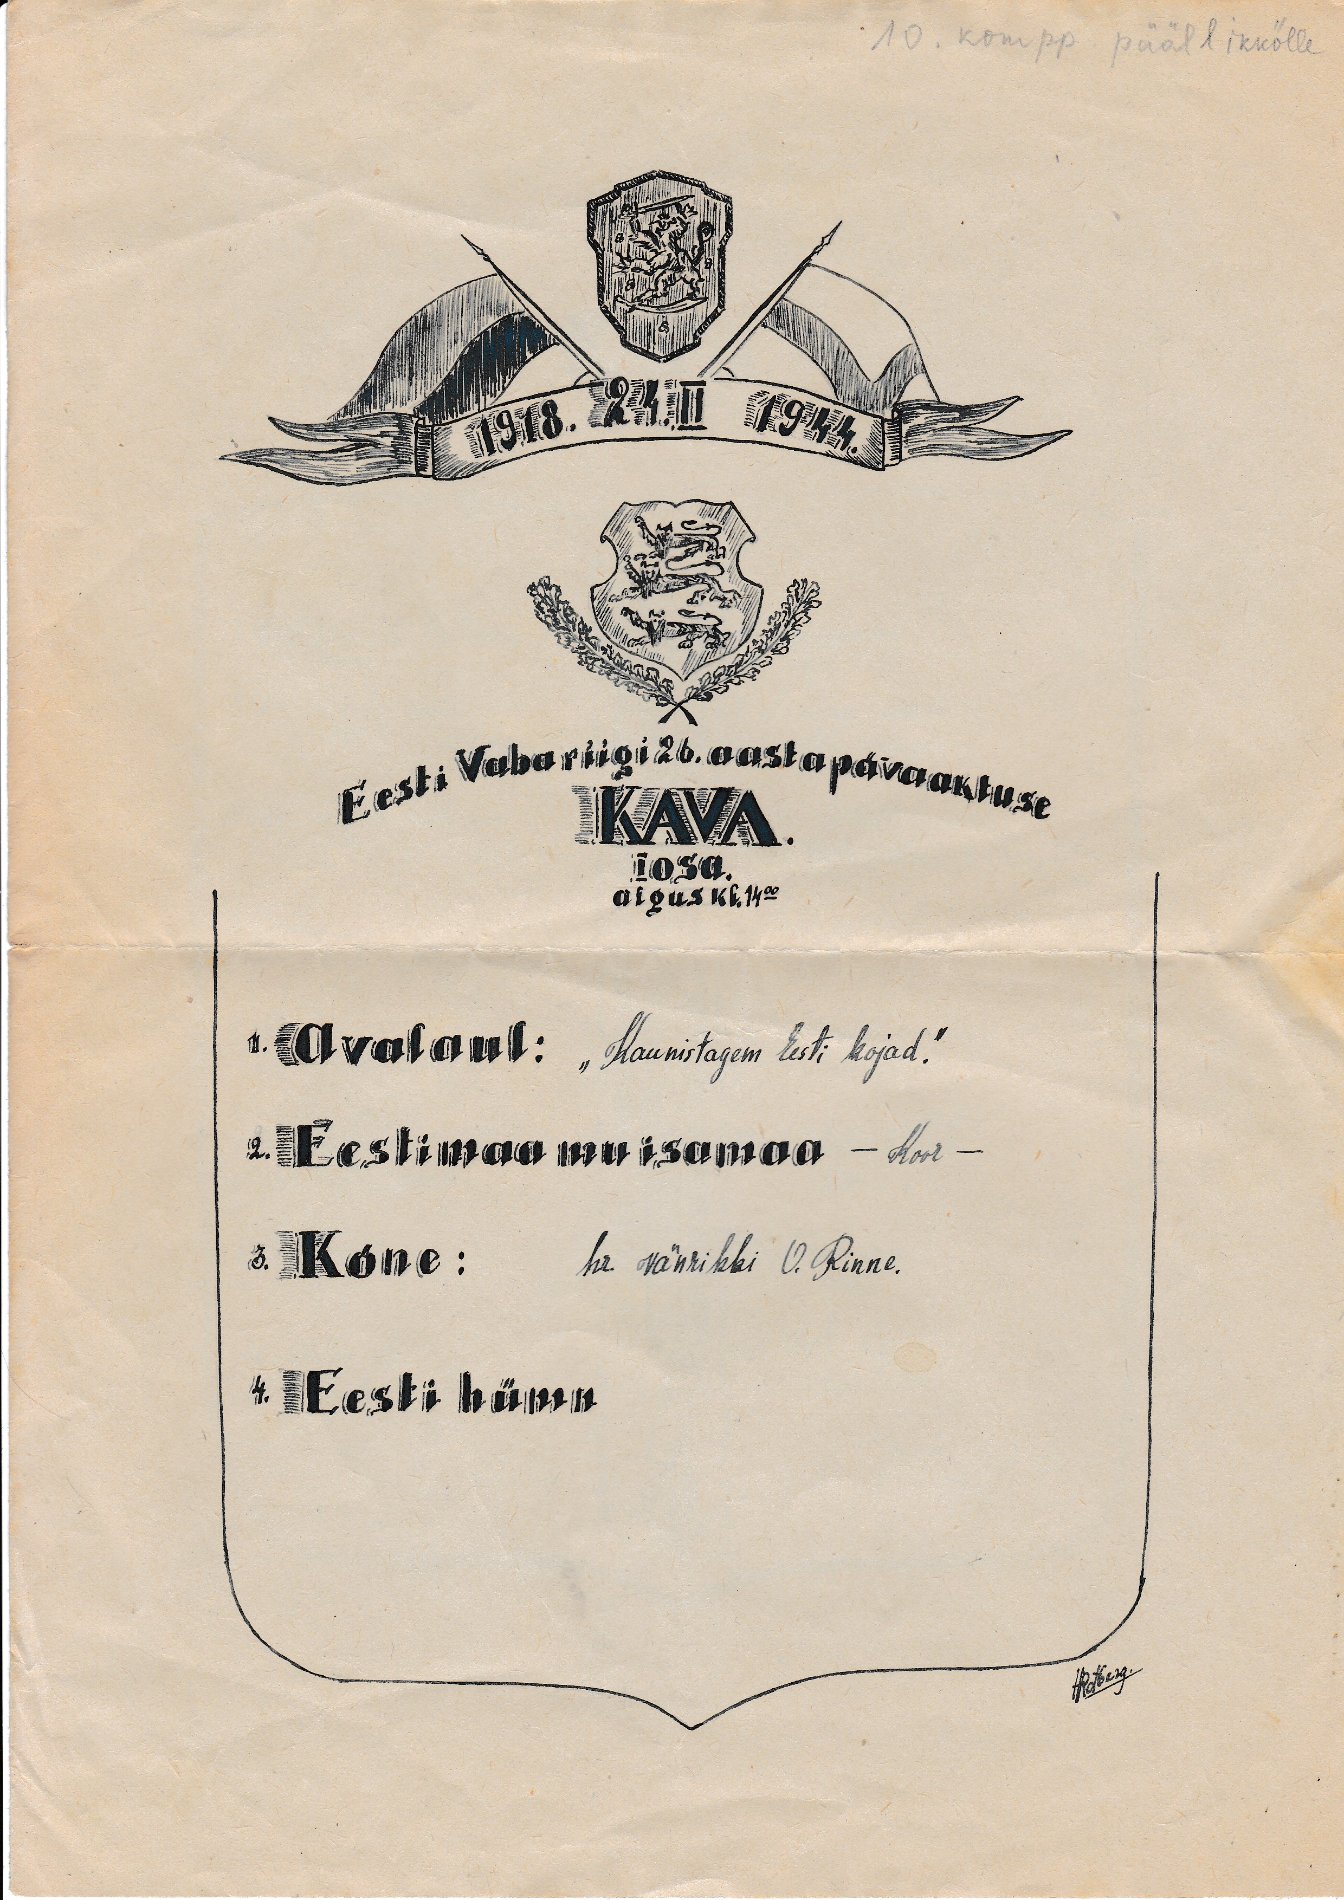 10. kompp. päällikkölle
1918. 24. II 1944.
Eesti Vabariigi 26. aastapävaaktuse
KAVA.
I osa.
algus kl. 14⁰⁰
1. Avalaul: „Kaunistagem Eesti kojad."
2. Eestimaa mu isamaa – Koor –
3. Kõne: hr. vänrikki O. Rinne.
4. Eesti hümn